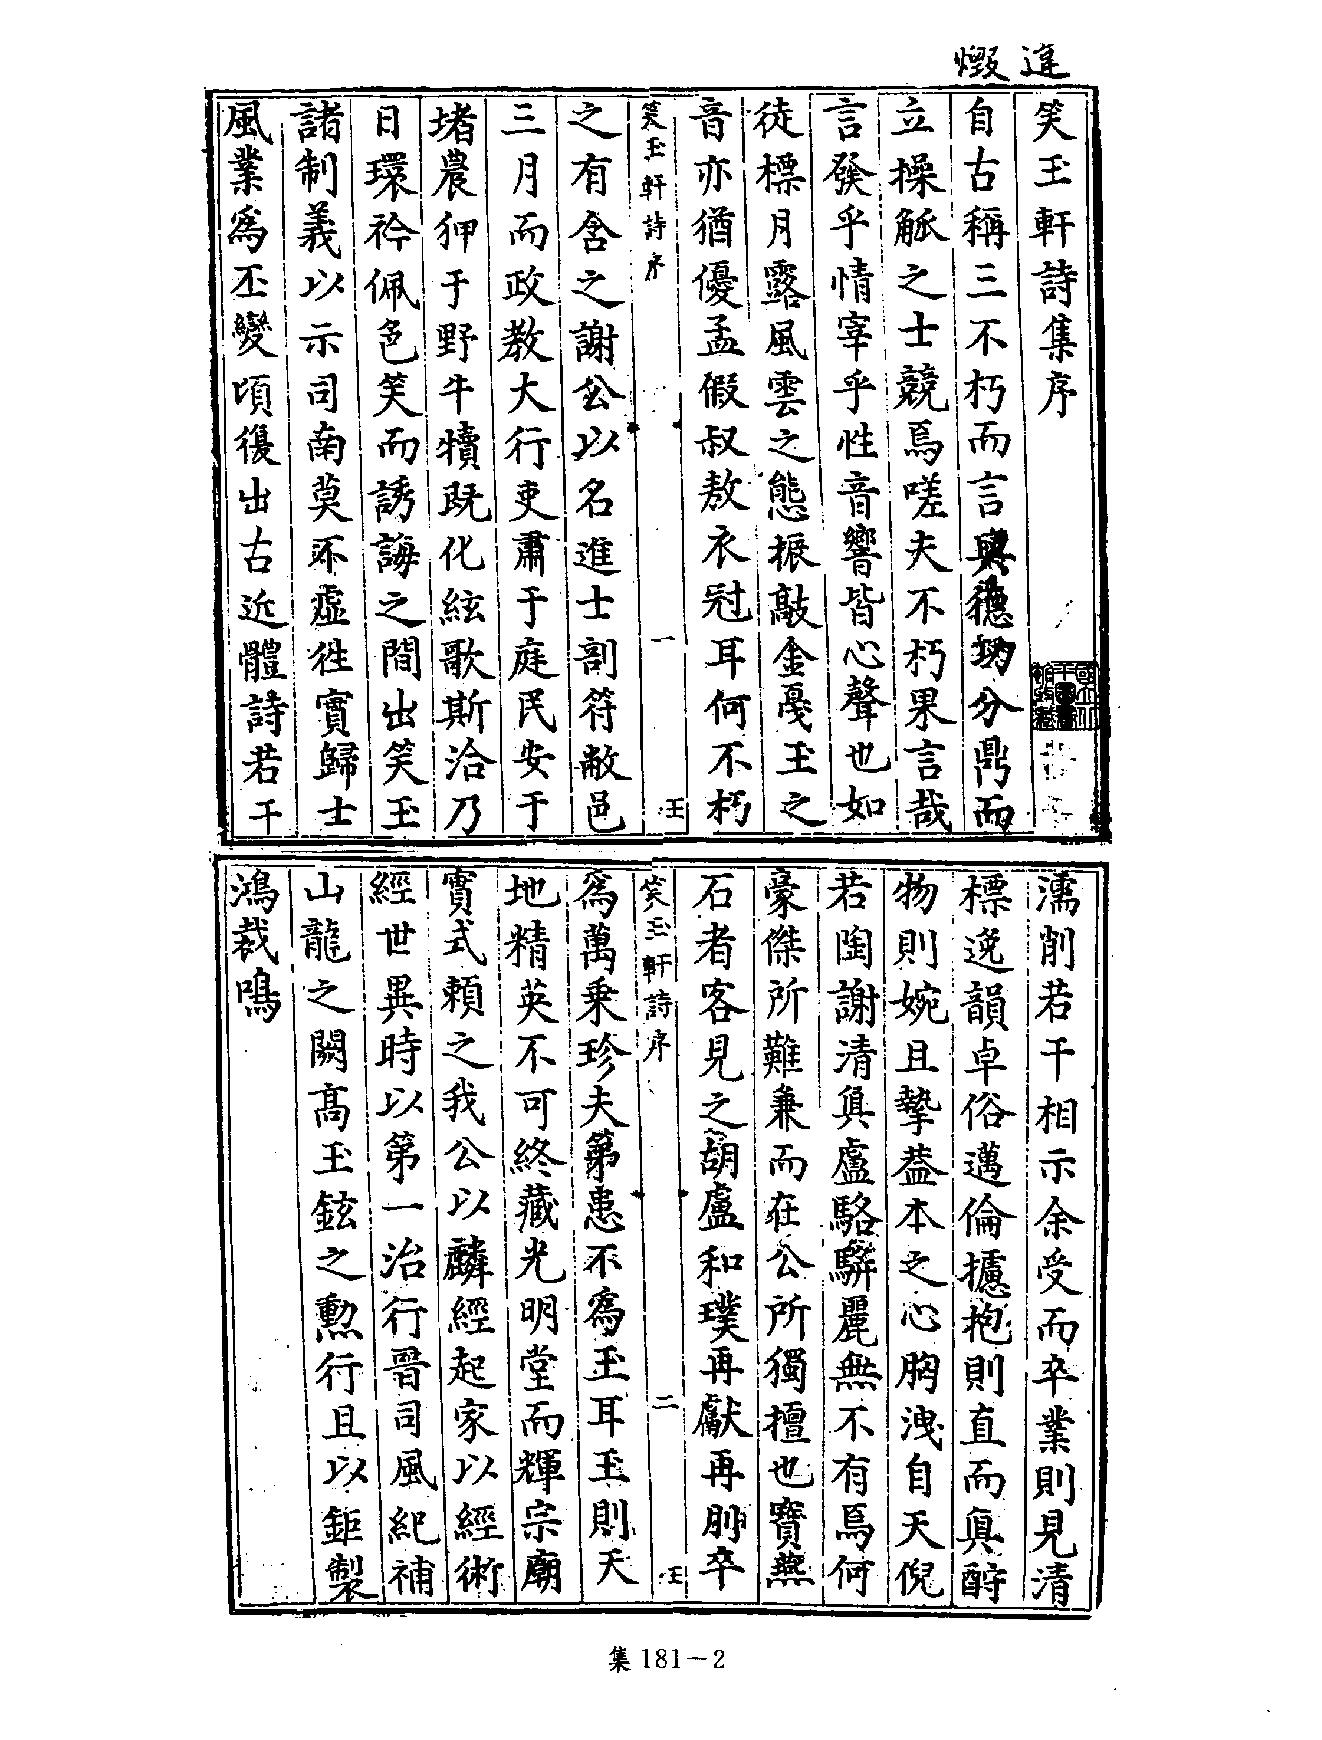 違 燬
笑玉軒詩集序
自古稱三不朽而言與德功分鼎而
立操觚之士競焉嗟夫不朽果言哉
言發乎情宰乎性音響皆心聲也如
徒標月露風雲之態振敲金戞玉之
音亦猶優孟假叔敖衣冠耳何不朽
笑玉軒詩序 一 王
之有含之謝公以名進士剖符敝邑
三月而政教大行吏肅于庭民安于
堵農狎于野牛犢既化絃歌斯洽乃
日環衿佩色笑而誘誨之間出笑玉
諸制義以示司南莫不虛徃實歸士
風業爲丕變頃復出古近體詩若干
濡削若干相示余受而卒業則見清
標逸韻卓俗邁倫攄抱則直而眞酧
物則婉且摯葢本之心胸洩自天倪
若陶謝清眞盧駱駢麗無不有焉何
豪傑所難兼而在公所獨擅也寶燕
石者客見之胡盧和璞再獻再刖卒
笑玉軒詩序 二 王
爲萬乗珍夫第患不爲玉耳玉則天
地精英不可終藏光明堂而輝宗廟
實式賴之我公以麟經起家以經術
經世異時以第一治行晉司風紀補
山龍之闕髙玉鉉之勲行且以鉅製
鴻裁鳴
集 181－2